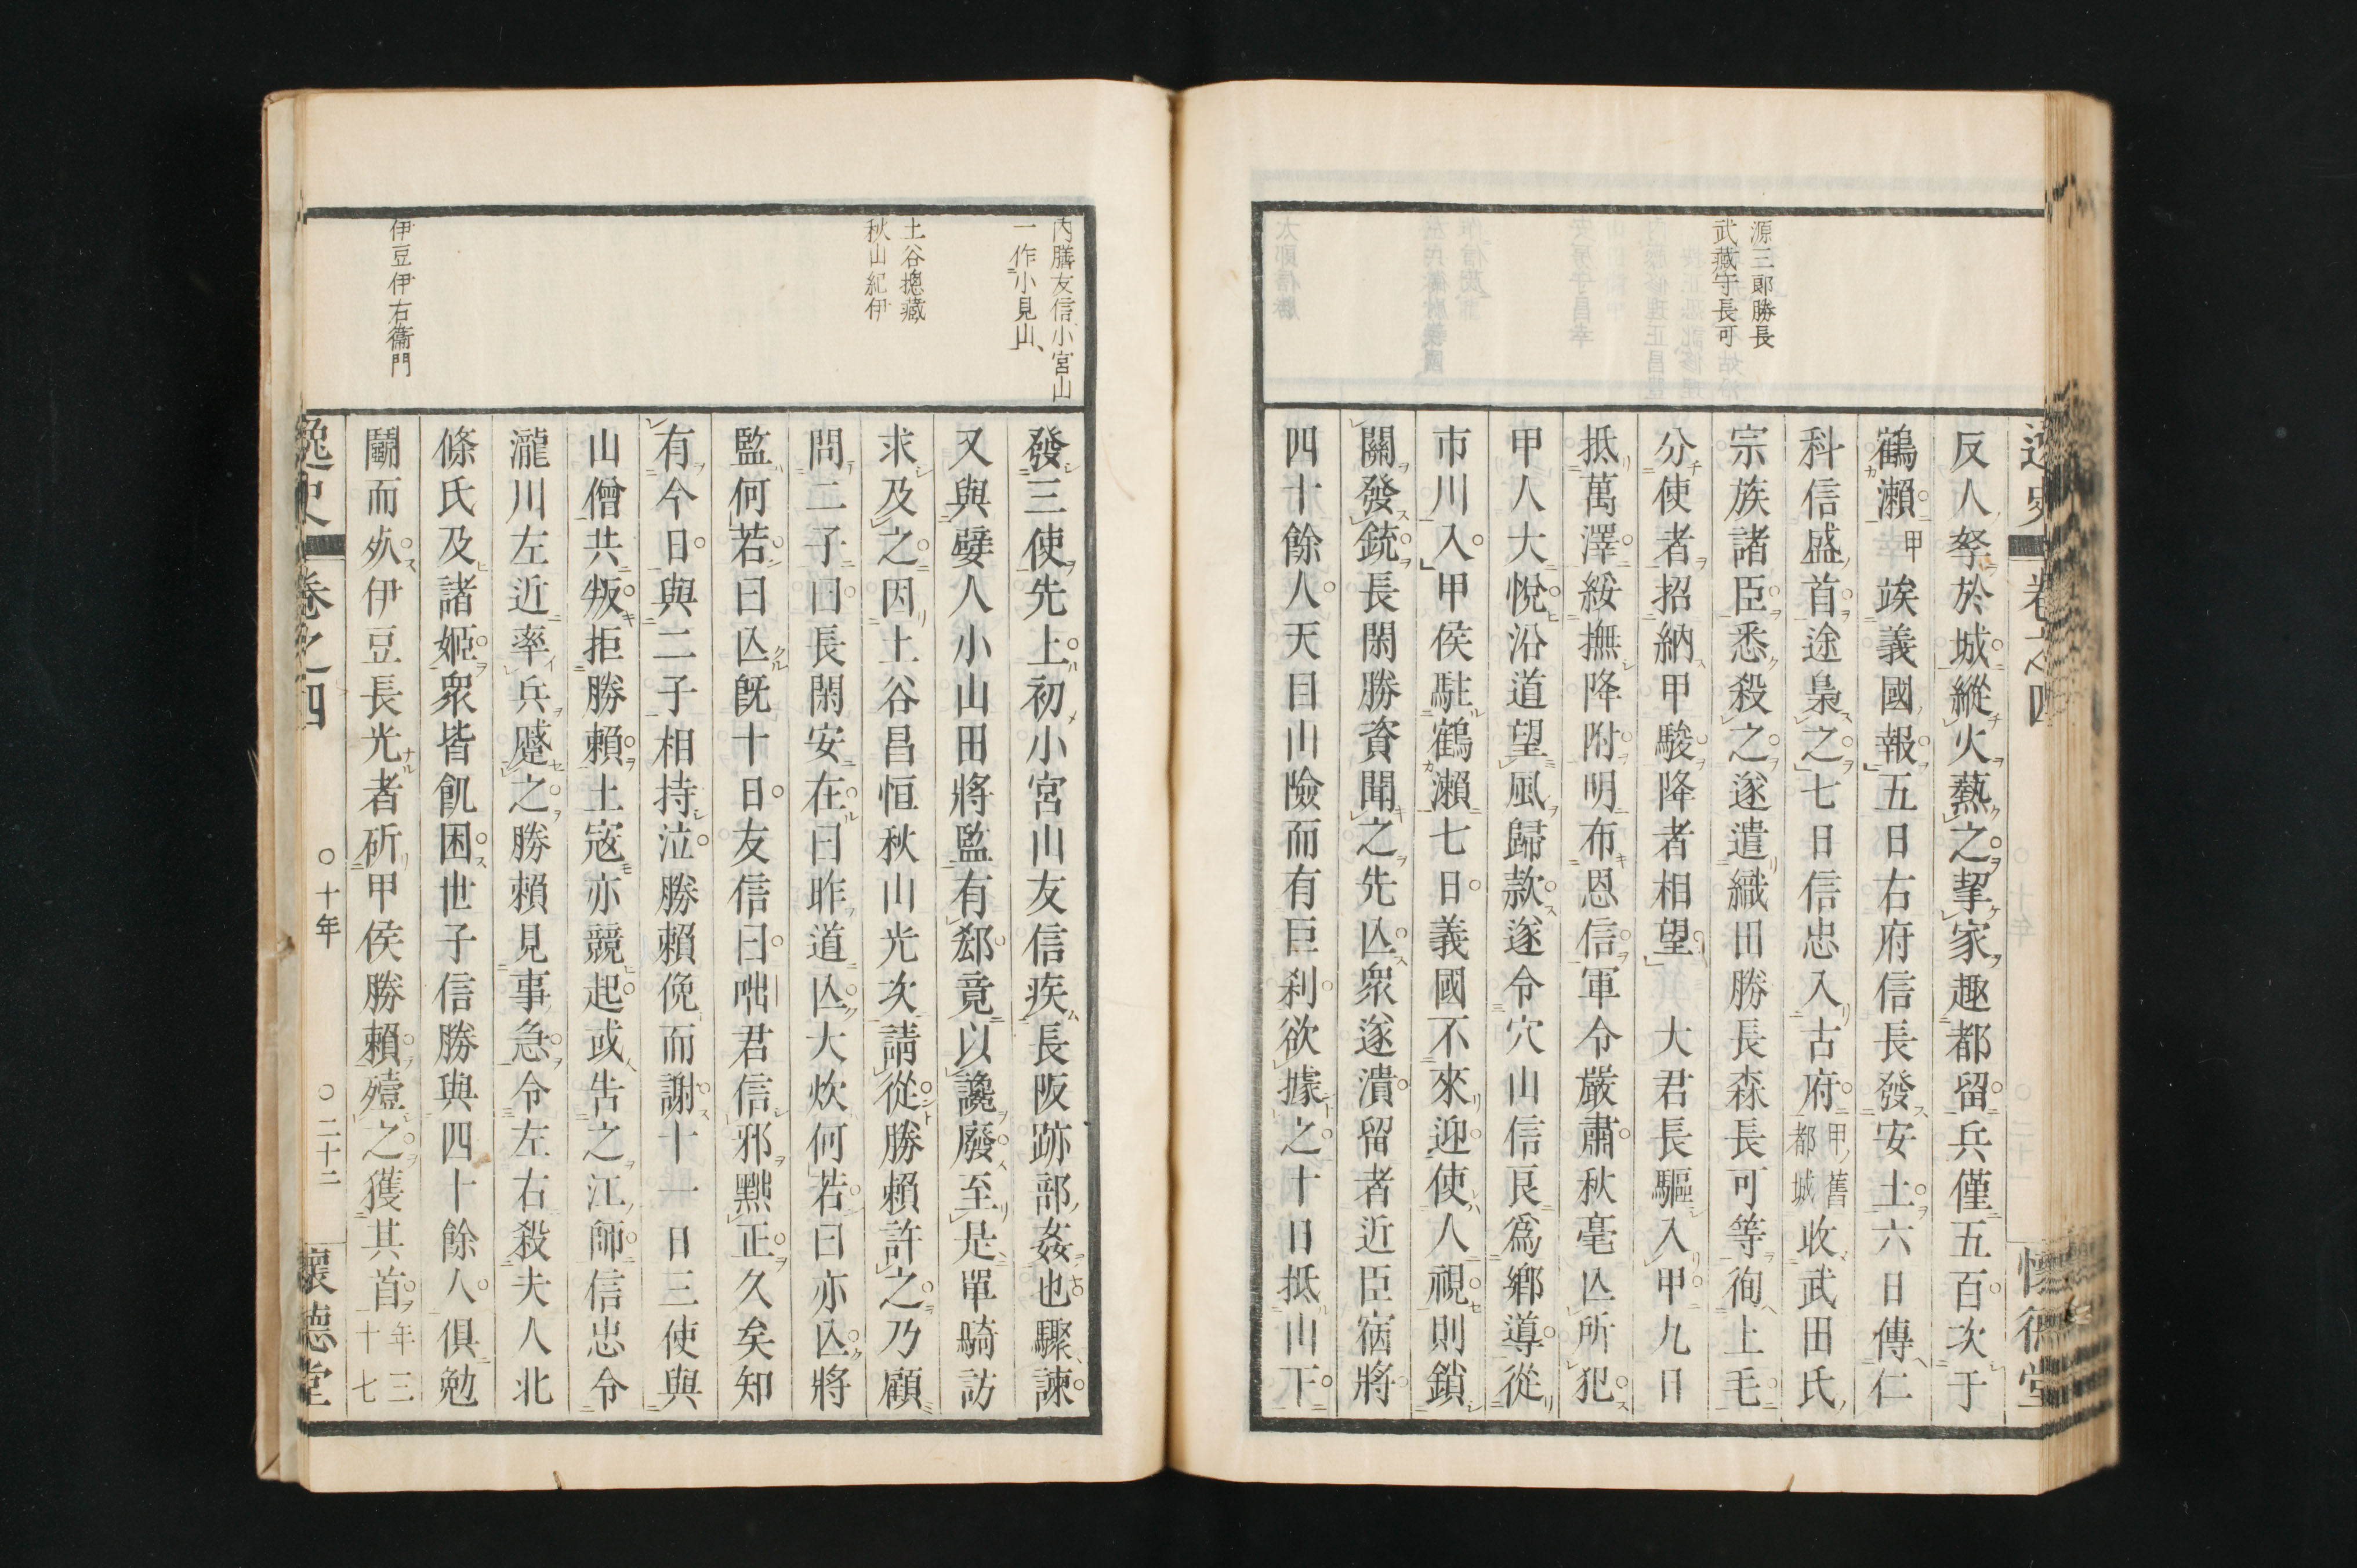 源三郎勝長
武藏守長可
反人孥於城縱火爇之挈家趣都留兵僅五百次于
鶴瀨甲竢義國報五日右府信長發安土六日傳仁
科信盛首途梟之七日信忠入古府甲ノ舊都城收武田氏
宗族諸臣悉殺之遂遣織田勝長森長可等徇上毛
分使者招納甲駿降者相望大君長驅入甲九日
抵萬澤綏撫降附明布恩信軍令嚴肅秋毫亾所犯
甲人大悅沿道望風歸款遂令穴山信良爲鄕導從
市川入甲侯駐鶴瀨七日義國不來迎使人視則鎖
關發銃長閑勝資聞之先亾衆遂潰留者近臣宿將
四十餘人天目山險而有巨刹欲據之十日抵山下
內膳友信小宮山
一作小見山
土谷摠藏
秋山紀伊
伊豆伊右衞門
發三使先上初小宮山友信疾長阪跡部姦也驟諫
又與嬖人小山田將監有郄竟以讒廢至是單騎訪
求及之因土谷昌恒秋山光次請從勝賴許之乃顧
問二子曰長閑安在曰昨道亾大炊何若曰亦亾將
監何若曰亾旣十日友信曰咄君信邪黜正久矣知
有今日與二子相持泣勝賴俛而謝十一日三使與
山僧共叛拒勝賴土寇亦競起或告之江師信忠令
瀧川左近率兵蹙之勝賴見事急令左右殺夫人北
條氏及諸姬衆皆飢困世子信勝與四十餘人俱勉
鬭而死伊豆長光者斫甲侯勝賴殪之獲其首年三十七
逸史 卷之四 ○十年 ○二十二 懷德堂